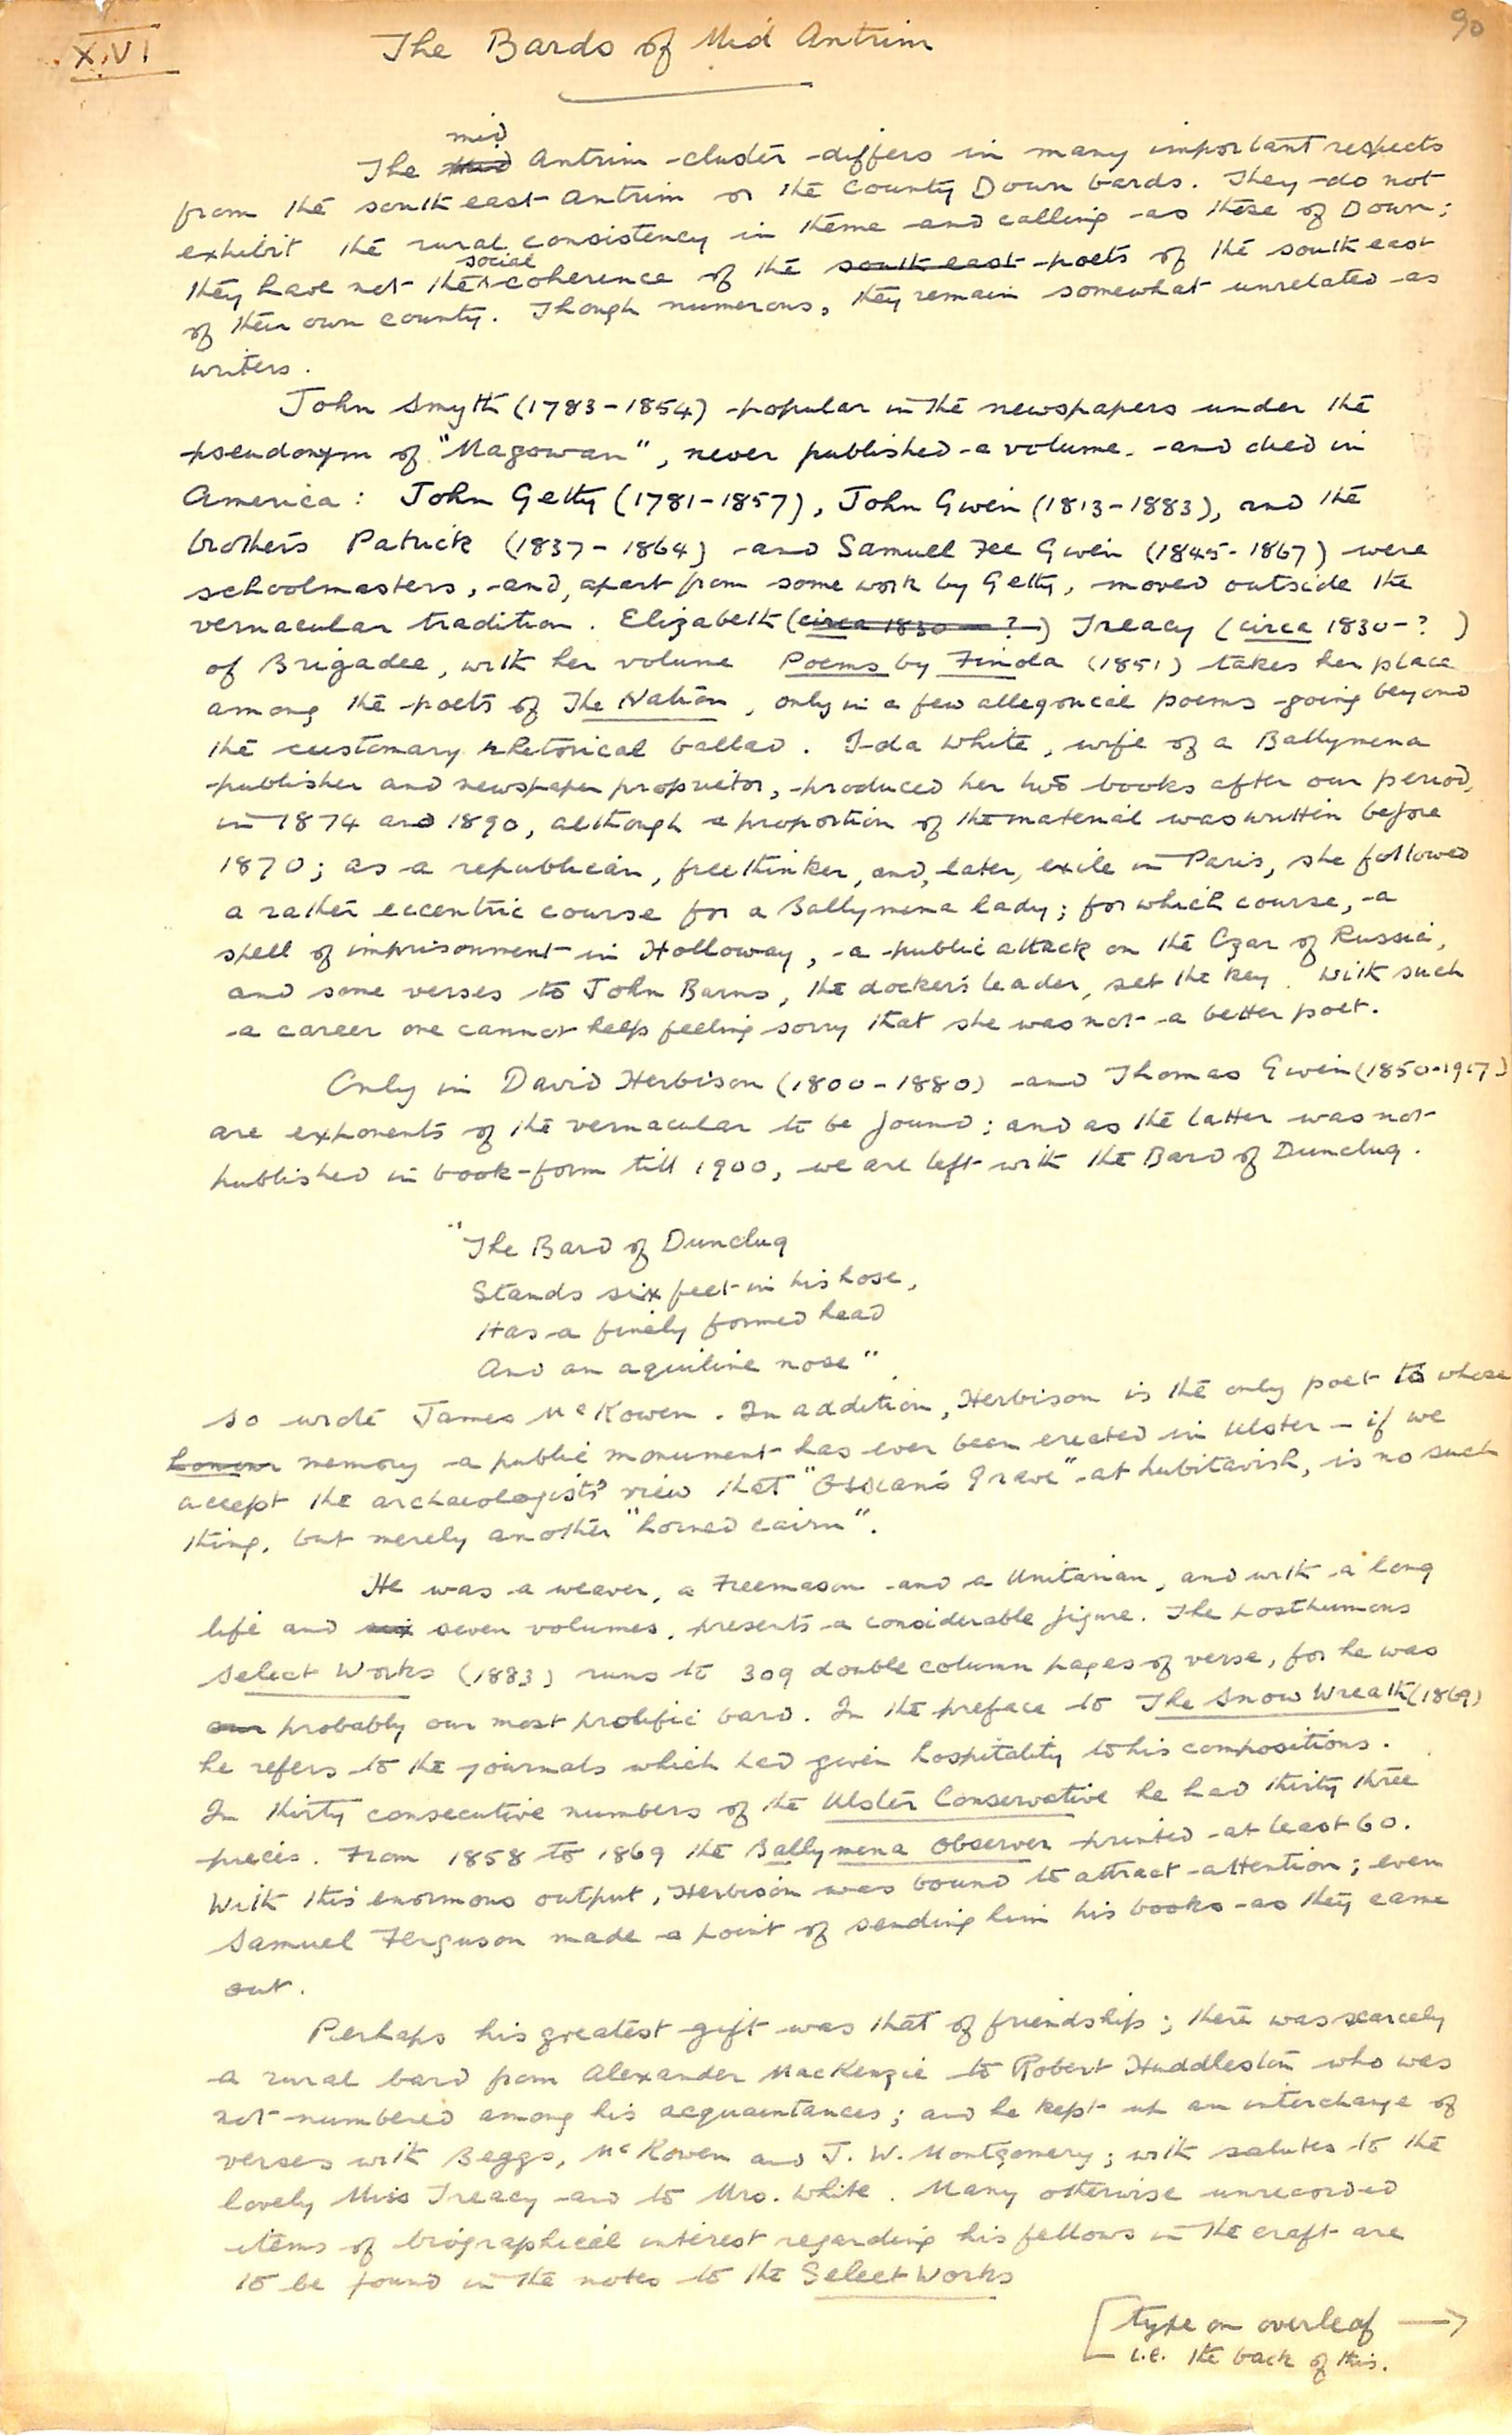 XVI
The Bards of Mid Antrim
90
mid
The Mid Antrim cluster differs in many important respects
from the south east Antrim or the County Down bards. They do not
exhibit the rural consistency in theme and calling as those of Down;
social
they have not the coherence of the south east poets of the south east
of their own county. Though numerous, they remain somewhat unrelated as
writers.
John Smyth (1783-1854) popular in the newspapers under the
pseudonym of "Magowan", never published a volume and died in
America: John Getty (1781-1857), John Gwein (1813-1883), and the
brothers Patrick (1837-1864) and Samuel Fee Gwein (1845-1867) were
schoolmasters, and, apart from some work by Getty, moved outside the
vernacular tradition. Elizabeth (circa 1830 - ?) Treacy (circa 1830-?)
of Brigadee, with her volume Poems by Finola (1851) takes her place
among the poets of The Nation, only in a few allegorical poems going beyond
the customary rhetorical ballad. Ida White, wife of a Ballymena
publisher and newspaper proprietor, produced her two books after our period,
in 1874 and 1890, although a proportion of the material was written before
1870; as a republican, freethinker, and, later, exile in Paris, she followed
a rather eccentric course for a Ballymena lady; for which course, a
spell of imprisonment in Holloway, a public attack on the Czar of Russia,
and some verses to John Barns, the docker's leader, set the key. With such
a career one cannot help feeling sorry that she was not a better poet.
Only in David Herbison (1800-1880) and Thomas Gwein (1850-1917)
are exponents of the vernacular to be found; and as the latter was not
published in book-form till 1900, we are left with the Bard of Dunclug.
"The Bard of Dunclug
Stands six feet in his hose,
Has a finely formed head
And an aquiline nose"
so wrote James McKowen. In addition, Herbison is the only poet to whose
honour memory a public monument has ever been erected in Ulster - if we
accept the archaeologists' view that "Ossian's Grave" at Lubitavish, is no such
thing, but merely another "horned cairn".
He was a weaver, a Freemason and a Unitarian, and with a long
life and six seven volumes, presents a considerable figure. The posthumous
Select Works (1883) runs to 309 double column pages of verse, for he was
our probably our most prolific bard. In the preface to The Snow Wreath (1869)
he refers to the journals which had given hospitality to his compositions.
In thirty consecutive numbers of the Ulster Conservative he had thirty three
pieces. From 1858 to 1869 the Ballymena Observer printed at least 60.
With this enormous output, Herbison was bound to attract attention; even
Samuel Ferguson made a point of sending him his books as they came
out.
Perhaps his greatest gift was that of friendship; there was scarcely
a rural bard from Alexander MacKenzie to Robert Huddleston who was
not numbered among his acquaintances; and he kept up an interchange of
verses with Beggs, McKowen and J. W. Montgomery; with salutes to the
lovely Miss Treacy and to Mrs. White. Many otherwise unrecorded
items of biographical interest regarding his fellows in the craft are
to be found in the notes to the Select Works
[type on overleaf →
i.e. the back of this.